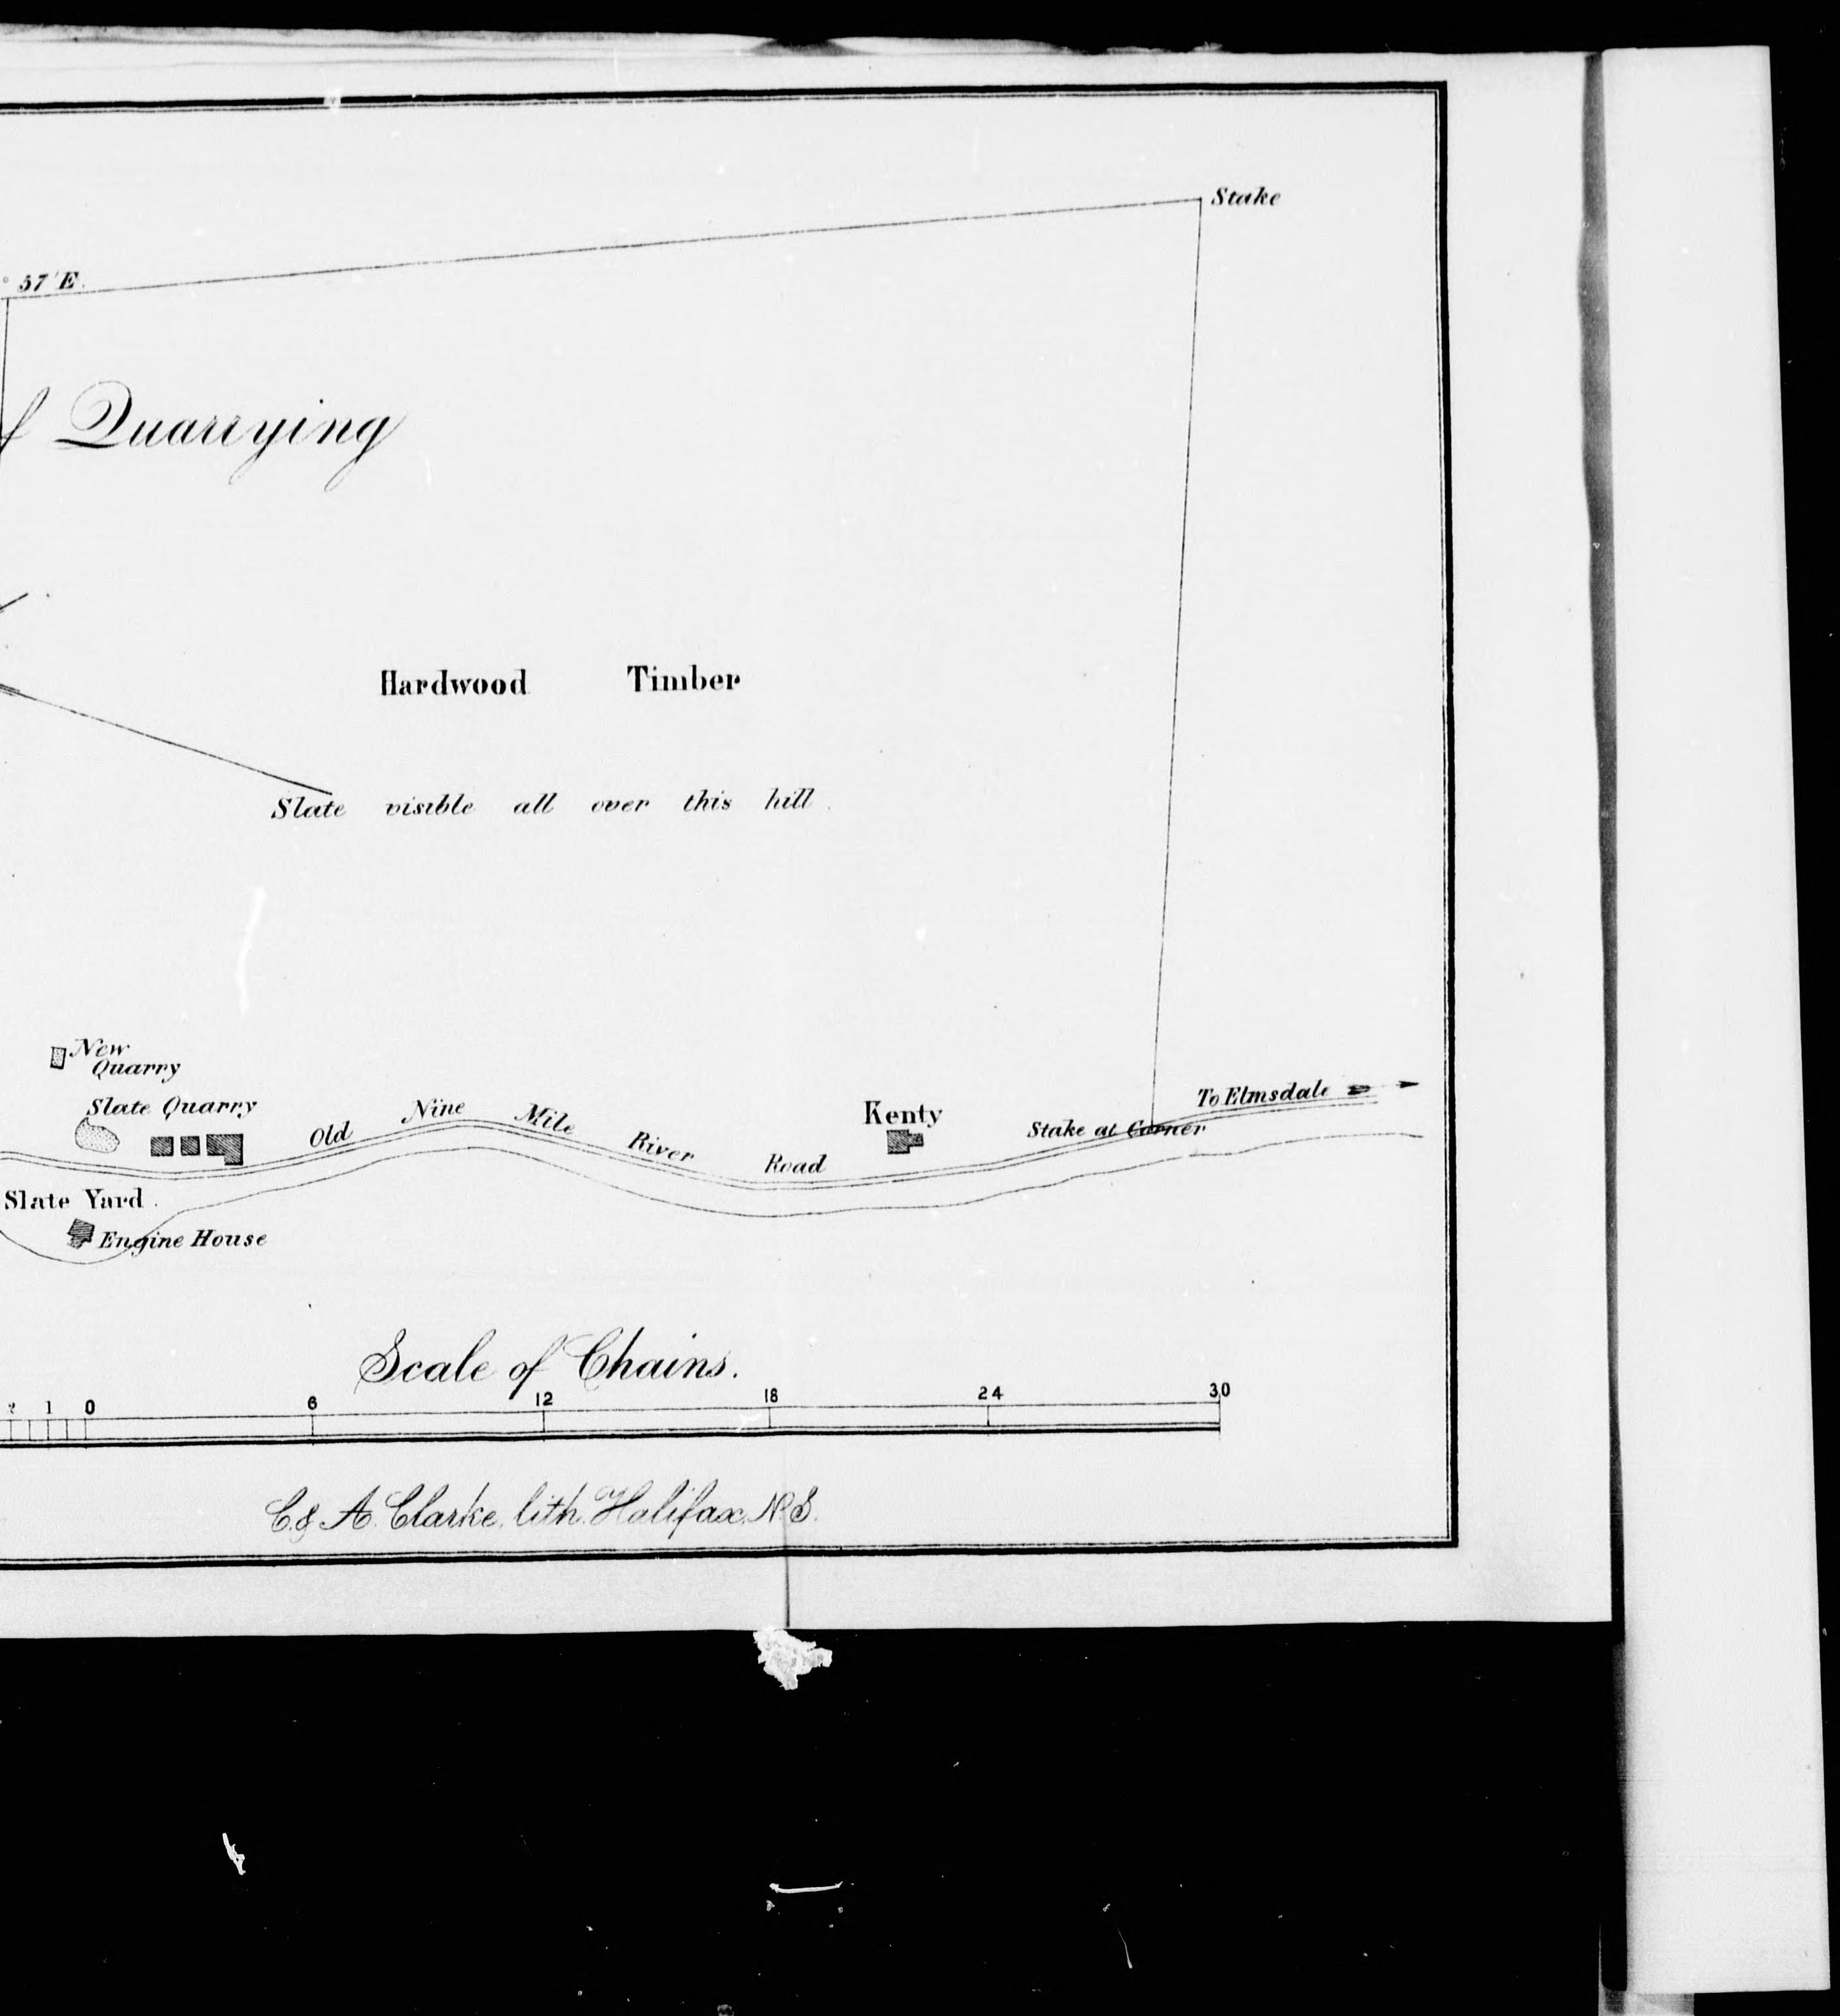 Stake
° 57' E.
f Quarrying
Hardwood Timber
Slate visible all over this hill.
New
Quarry
Slate Quarry
Old Nine Mile River Road
Kenty
Stake at Corner
To Elmsdale
Slate Yard.
Engine House
Scale of Chains.
2 1 0 6 12 18 24 30
C. & A. Clarke, lith. Halifax, N.S.